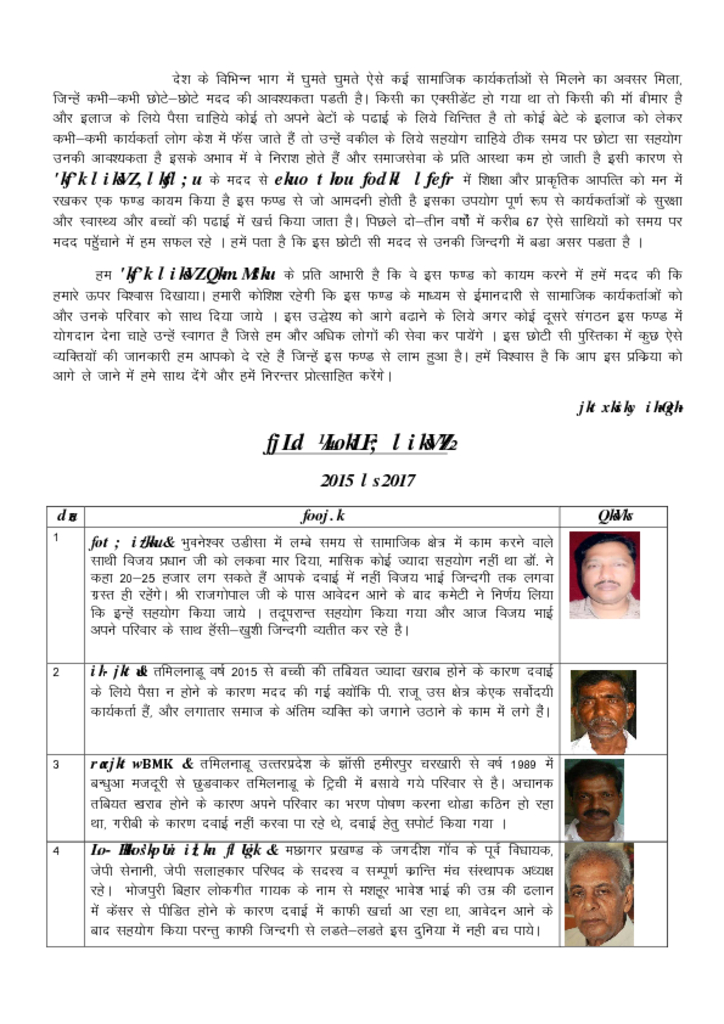 देश के विभिन्न भाग में घुमते घुमते ऐसे कई सामाजिक कार्यकर्ताओं से मिलने का अवसर मिला,
जिन्हें कभी–कभी छोटे–छोटे मदद की आवश्यकता पडती है। किसी का एक्सीडेंट हो गया था तो किसी की माँ बीमार है
और इलाज के लिये पैसा चाहिये कोई तो अपने बेटों के पढाई के लिये चिन्तित है तो कोई बेटे के इलाज को लेकर
कभी–कभी कार्यकर्ता लोग केश में फॅस जाते हैं तो उन्हें वकील के लिये सहयोग चाहिये ठीक समय पर छोटा सा सहयोग
उनकी आवश्यकता है इसके अभाव में वे निराश होते हैं और समाजसेवा के प्रति आस्था कम हो जाती है इसी कारण से
के मदद से में शिक्षा और प्राकृतिक आपत्ति को मन में
रखकर एक फण्ड कायम किया है इस फण्ड से जो आमदनी होती है इसका उपयोग पूर्ण रूप से कार्यकर्ताओं के सुरक्षा
और स्वास्थ्य और बच्चों की पढाई में खर्च किया जाता है। पिछले दो–तीन वर्षों में करीब 67 ऐसे साथियों को समय पर
मदद पहुँचाने में हम सफल रहे । हमें पता है कि इस छोटी सी मदद से उनकी जिन्दगी में बडा असर पडता है ।
हम के प्रति आभारी है कि वे इस फण्ड को कायम करने में हमें मदद की कि
हमारे ऊपर विश्वास दिखाया। हमारी कोशिश रहेगी कि इस फण्ड के माध्यम से ईमानदारी से सामाजिक कार्यकर्ताओं को
और उनके परिवार को साथ दिया जाये । इस उद्धेश्य को आगे बढाने के लिये अगर कोई दूसरे संगठन इस फण्ड में
योगदान देना चाहे उन्हें स्वागत है जिसे हम और अधिक लोगों की सेवा कर पायेंगे । इस छोटी सी पुस्तिका में कुछ ऐसे
व्यक्तियों की जानकारी हम आपको दे रहे हैं जिन्हें इस फण्ड से लाभ हुआ है। हमें विश्वास है कि आप इस प्रक्रिया को
आगे ले जाने में हमे साथ देंगे और हमें निरन्तर प्रोत्साहित करेंगे।
2015 l s 2017
fooj.k
1
भुवनेश्वर उडीसा में लम्बे समय से सामाजिक क्षेत्र में काम करने वाले
साथी विजय प्रधान जी को लकवा मार दिया, मासिक कोई ज्यादा सहयोग नहीं था डॉ. ने
कहा 20–25 हजार लग सकते हैं आपके दवाई में नहीं विजय भाई जिन्दगी तक लगवा
ग्रस्त ही रहेंगे। श्री राजगोपाल जी के पास आवेदन आने के बाद कमेटी ने निर्णय लिया
कि इन्हें सहयोग किया जाये । तदूपरान्त सहयोग किया गया और आज विजय भाई
अपने परिवार के साथ हॅसी–खुशी जिन्दगी व्यतीत कर रहे है।
2
तमिलनाडू वर्ष 2015 से बच्ची की तबियत ज्यादा खराब होने के कारण दवाई
के लिये पैसा न होने के कारण मदद की गई क्योंकि पी. राजू उस क्षेत्र केएक सर्वोदयी
कार्यकर्ता हैं, और लगातार समाज के अंतिम व्यक्ति को जगाने उठाने के काम में लगे हैं।
3
तमिलनाडू उत्तरप्रदेश के झाँसी हमीरपुर चरखारी से वर्ष 1989 में
बन्धुआ मजदूरी से छुडवाकर तमिलनाडू के ट्रिची में बसाये गये परिवार से है। अचानक
तबियत खराब होने के कारण अपने परिवार का भरण पोषण करना थोडा कठिन हो रहा
था, गरीबी के कारण दवाई नहीं करवा पा रहे थे, दवाई हेतु सपोर्ट किया गया ।
4
मछागर प्रखण्ड के जगदीश गाँव के पूर्व विधायक,
जेपी सेनानी, जेपी सलाहकार परिषद के सदस्य व सम्पूर्ण क्रान्ति मंच संस्थापक अध्यक्ष
रहे। भोजपुरी बिहार लोकगीत गायक के नाम से मशहूर भावेश भाई की उम्र की ढलान
में केंसर से पीडित होने के कारण दवाई में काफी खर्चा आ रहा था, आवेदन आने के
बाद सहयोग किया परन्तु काफी जिन्दगी से लडते–लडते इस दुनिया में नही बच पाये।